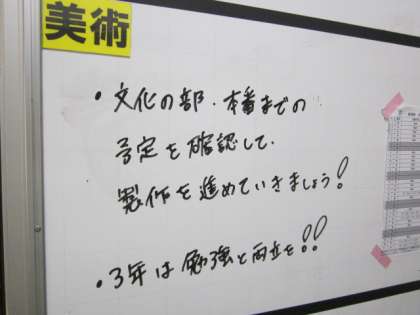 美術
・文化の部・本番までの
予定を確認して、
製作を進めていきましょう!
・3年は勉強と両立を!!